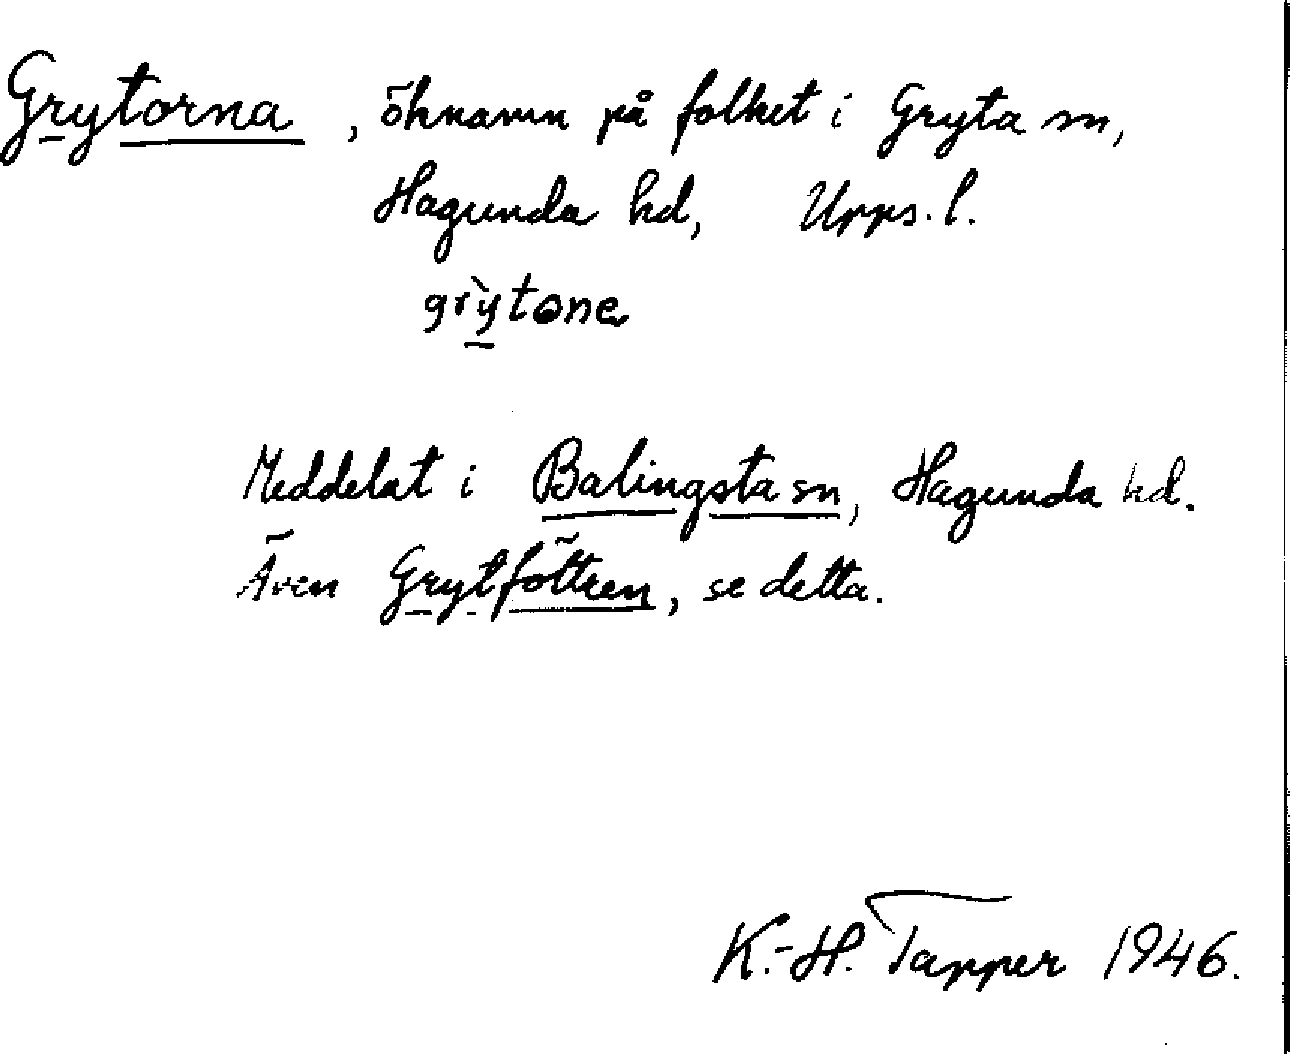 Grytorna, öknamn på folket i Gryta sn,
Hagunda hd, Upps. l.
grỳtone
Meddelat i Balingsta sn, Hagunda hd.
Även Grytföttren, se detta.
K.-H. Tapper 1946.